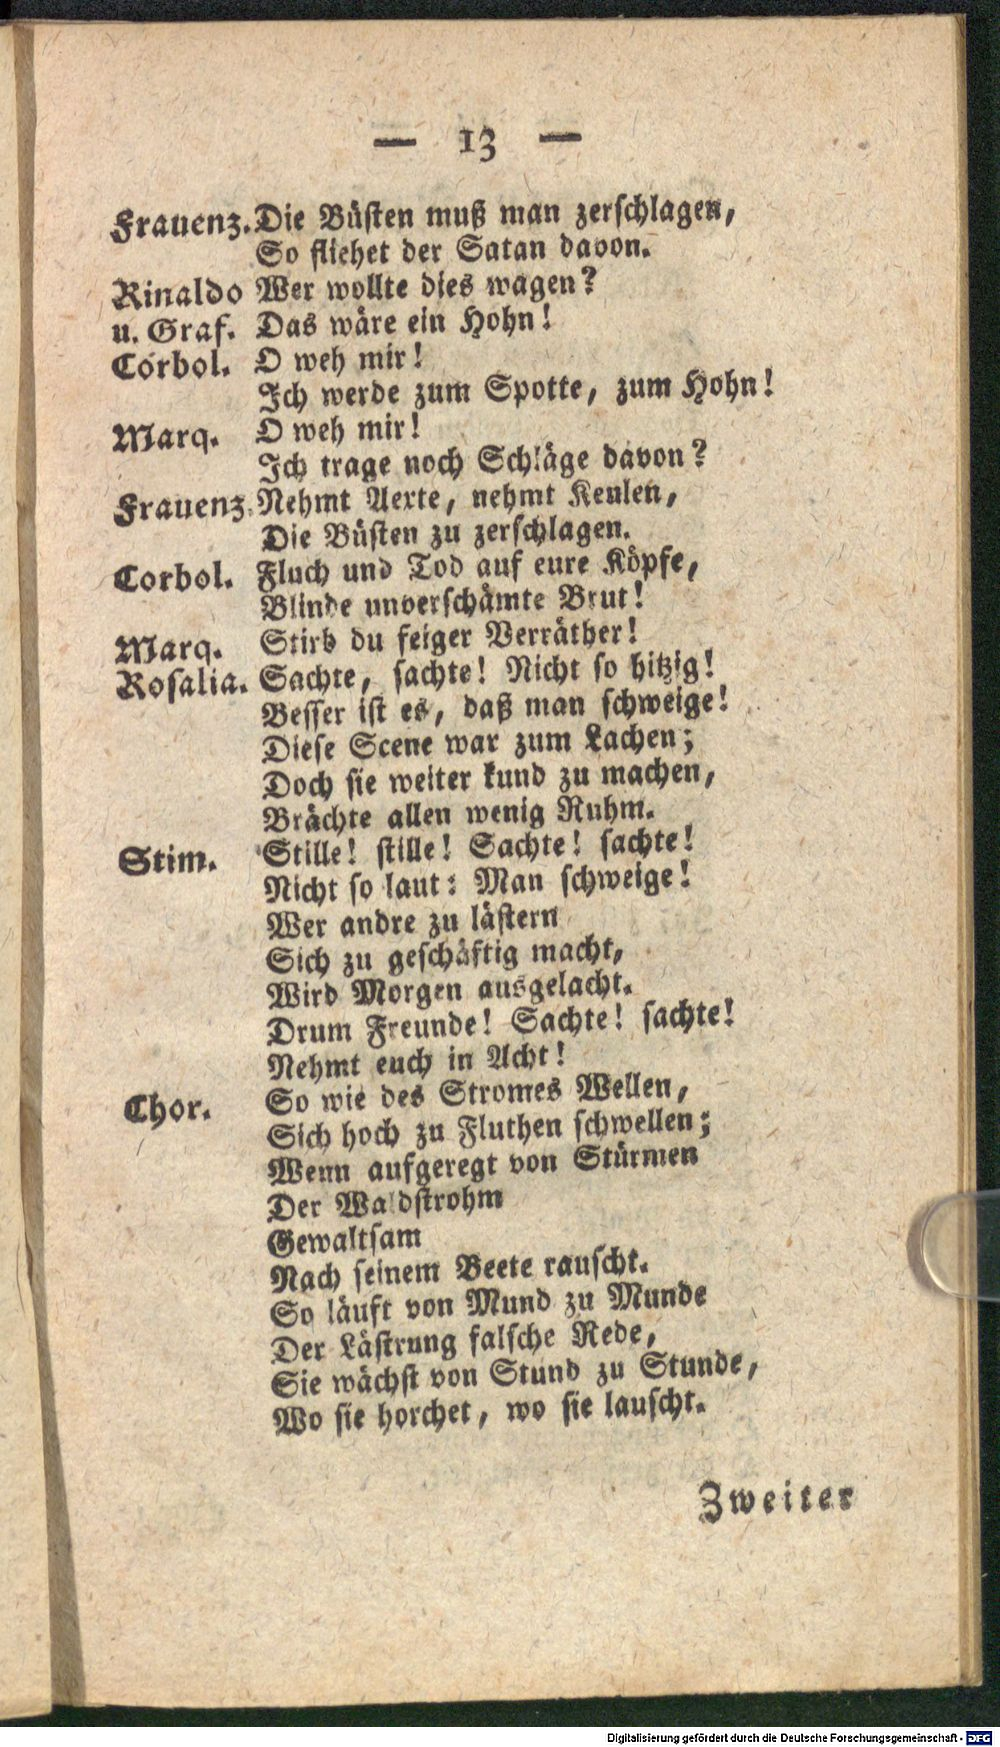 — 13 —
Frauenz. Die Büsten muß man zerschlagen,
So fliehet der Satan davon.
Rinaldo Wer wollte dies wagen?
u. Graf. Das wäre ein Hohn!
Corbol. O weh mir!
Ich werde zum Spotte, zum Hohn!
Marq. O weh mir!
Ich trage noch Schläge davon?
Frauenz. Nehmt Aexte, nehmt Keulen,
Die Büsten zu zerschlagen.
Corbol. Fluch und Tod auf eure Köpfe,
Blinde unverschämte Brut!
Marq. Stirb du feiger Verräther!
Rosalia. Sachte, sachte! Nicht so hitzig!
Besser ist es, daß man schweige!
Diese Scene war zum Lachen;
Doch sie weiter kund zu machen,
Brächte allen wenig Ruhm.
Stim. Stille! stille! Sachte! sachte!
Nicht so laut: Man schweige!
Wer andre zu lästern
Sich zu geschäftig macht,
Wird Morgen ausgelacht.
Drum Freunde! Sachte! sachte!
Nehmt euch in Acht!
Chor. So wie des Stromes Wellen,
Sich hoch zu Fluthen schwellen;
Wenn aufgeregt von Stürmen
Der Waldstrohm
Gewaltsam
Nach seinem Beete rauscht.
So läuft von Mund zu Munde
Der Lästrung falsche Rede,
Sie wächst von Stund zu Stunde,
Wo sie horchet, wo sie lauscht.
Zweiter
Digitalisierung gefördert durch die Deutsche Forschungsgemeinschaft - DFG